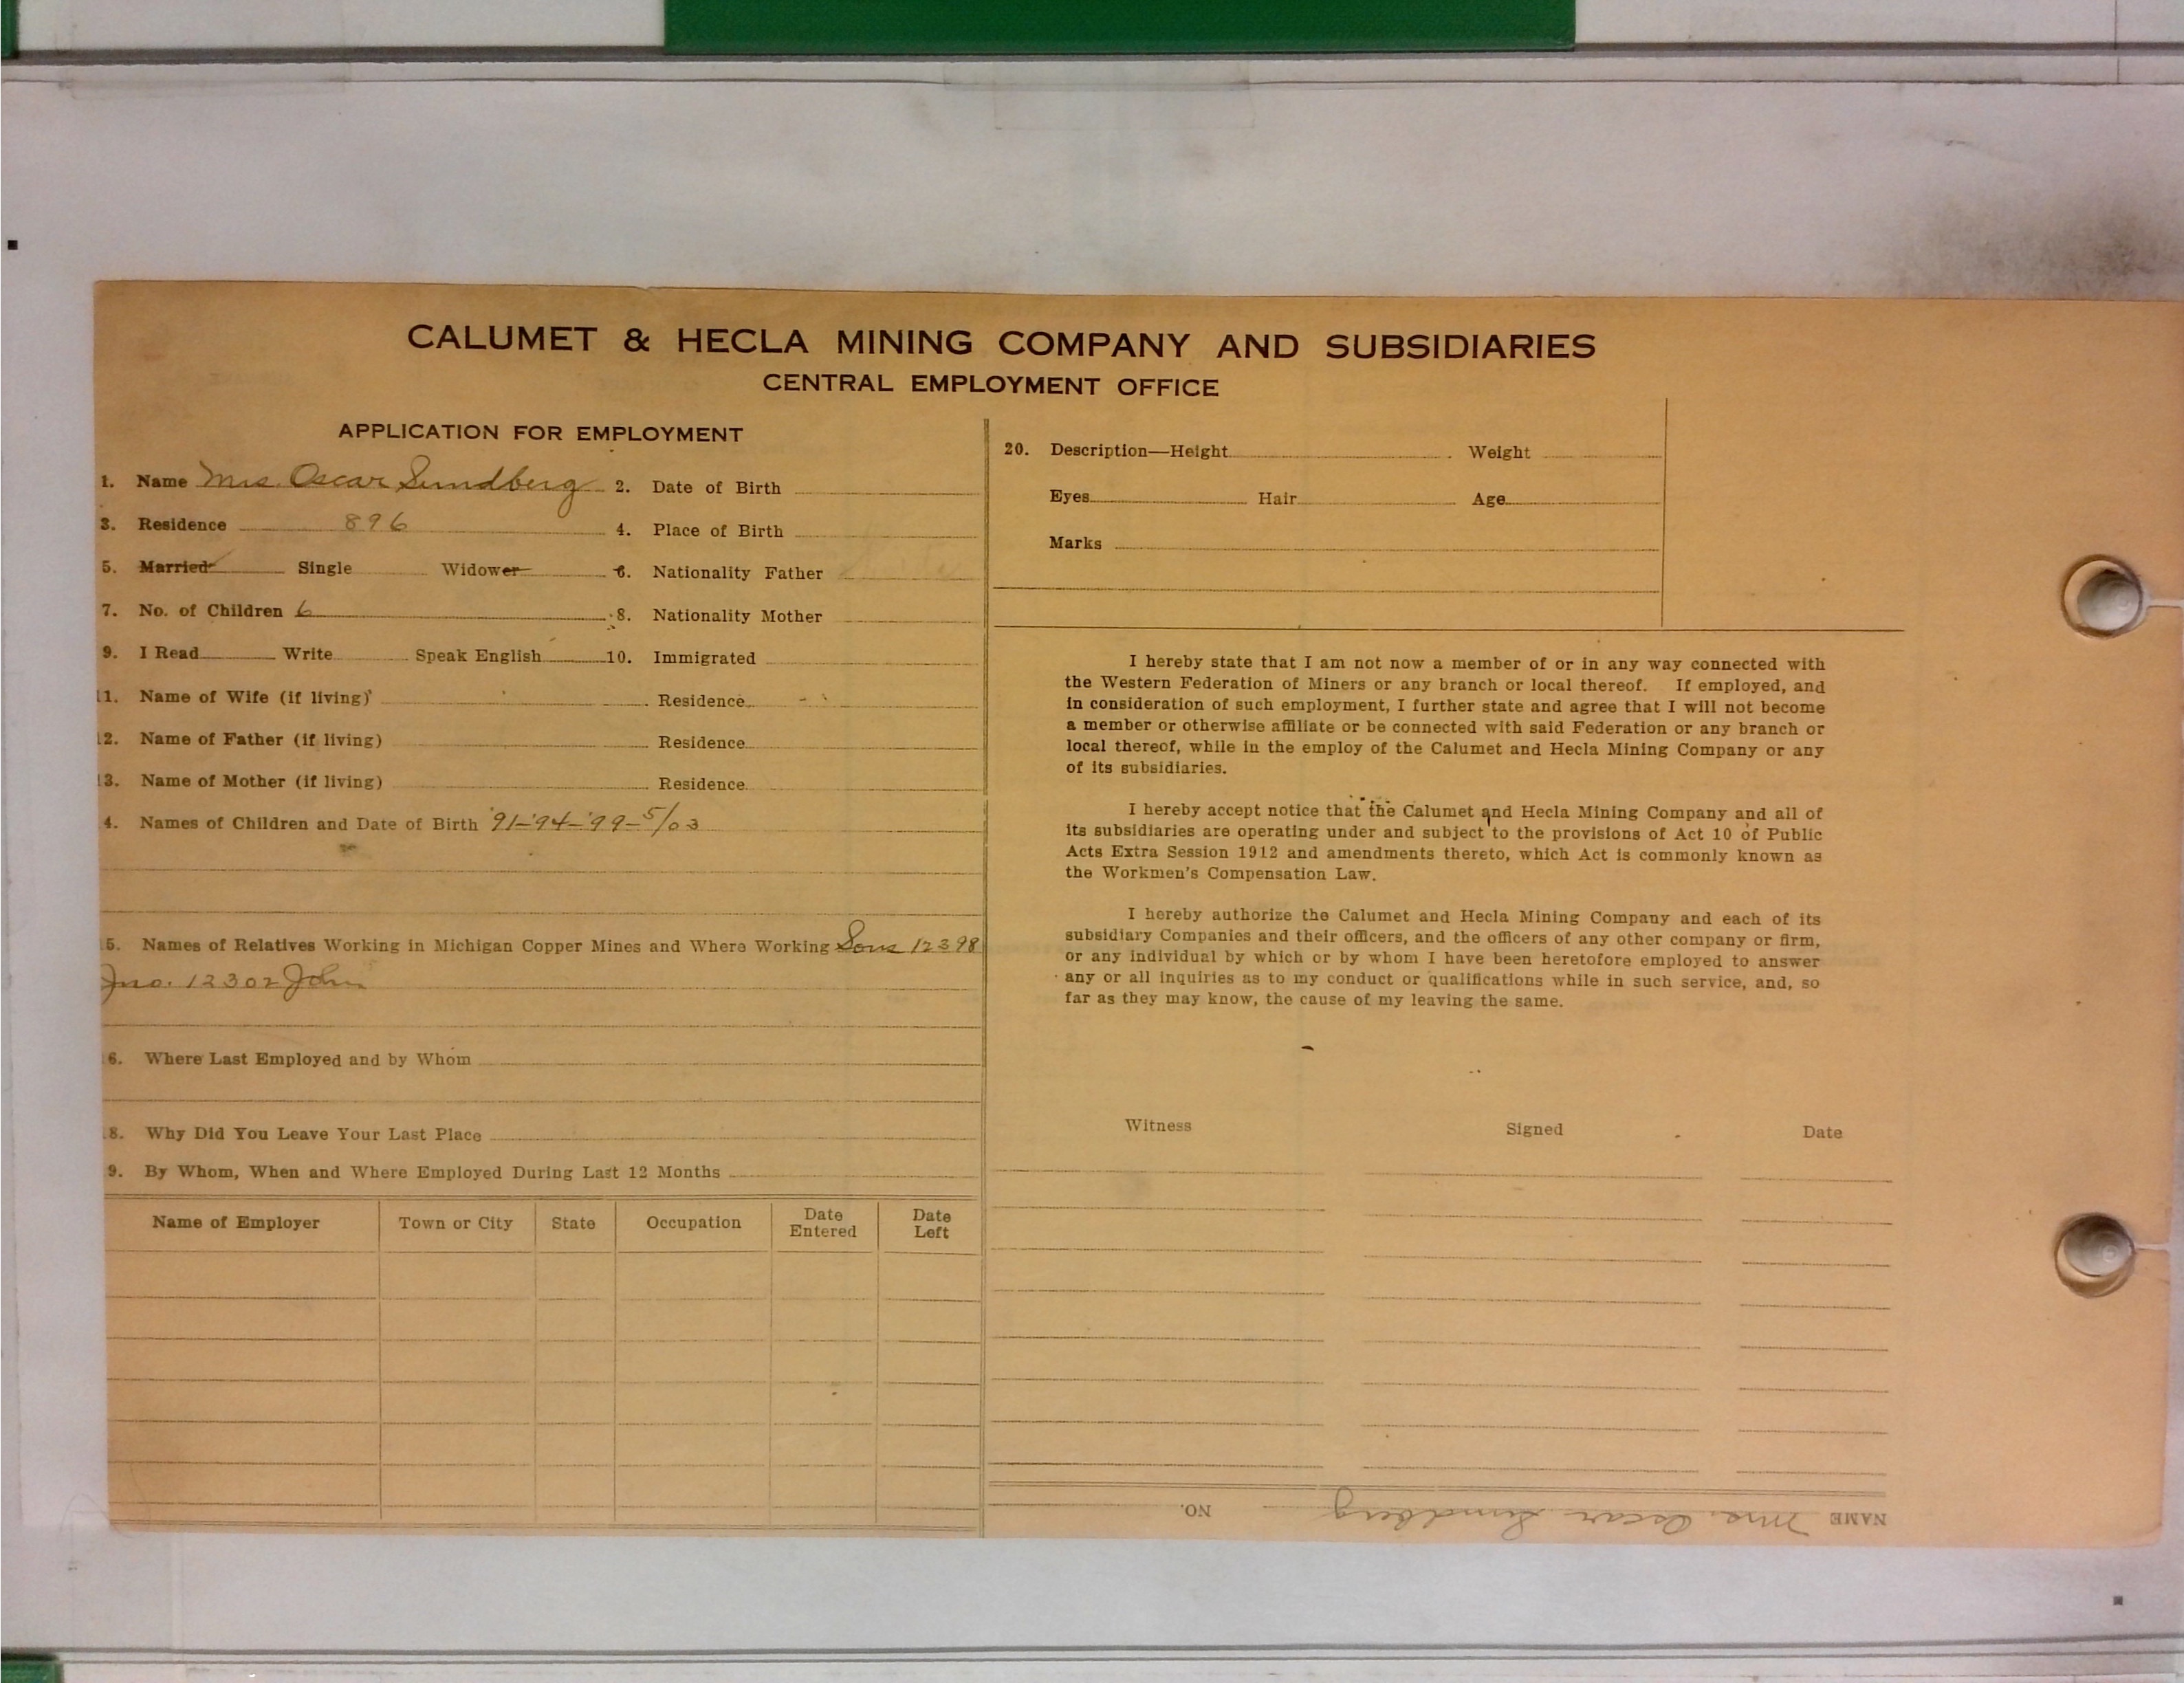 CALUMET & HECLA MINING COMPANY AND SUBSIDIARIES
CENTRAL EMPLOYMENT OFFICE
APPLICATION FOR EMPLOYMENT
1. Name Mrs. Oscar Sundberg 2. Date of Birth
3. Residence 896 4. Place of Birth
5. Married Single Widower 6. Nationality Father
7. No. of Children 6 8. Nationality Mother
9. I Read Write Speak English 10. Immigrated
11. Name of Wife (if living) Residence
12. Name of Father (if living) Residence
13. Name of Mother (if living) Residence
4. Names of Children and Date of Birth '91-'94-'99-5/03
5. Names of Relatives Working in Michigan Copper Mines and Where Working Sons 12398
Jno. 12302 John
6. Where Last Employed and by Whom
8. Why Did You Leave Your Last Place
9. By Whom, When and Where Employed During Last 12 Months
Name of Employer Town or City State Occupation Date Entered Date Left
20. Description—Height Weight
Eyes Hair Age
Marks
I hereby state that I am not now a member of or in any way connected with
the Western Federation of Miners or any branch or local thereof. If employed, and
in consideration of such employment, I further state and agree that I will not become
a member or otherwise affiliate or be connected with said Federation or any branch or
local thereof, while in the employ of the Calumet and Hecla Mining Company or any
of its subsidiaries.
I hereby accept notice that the Calumet and Hecla Mining Company and all of
its subsidiaries are operating under and subject to the provisions of Act 10 of Public
Acts Extra Session 1912 and amendments thereto, which Act is commonly known as
the Workmen's Compensation Law.
I hereby authorize the Calumet and Hecla Mining Company and each of its
subsidiary Companies and their officers, and the officers of any other company or firm,
or any individual by which or by whom I have been heretofore employed to answer
any or all inquiries as to my conduct or qualifications while in such service, and, so
far as they may know, the cause of my leaving the same.
Witness Signed Date
NAME Mrs. Oscar Sundberg NO.